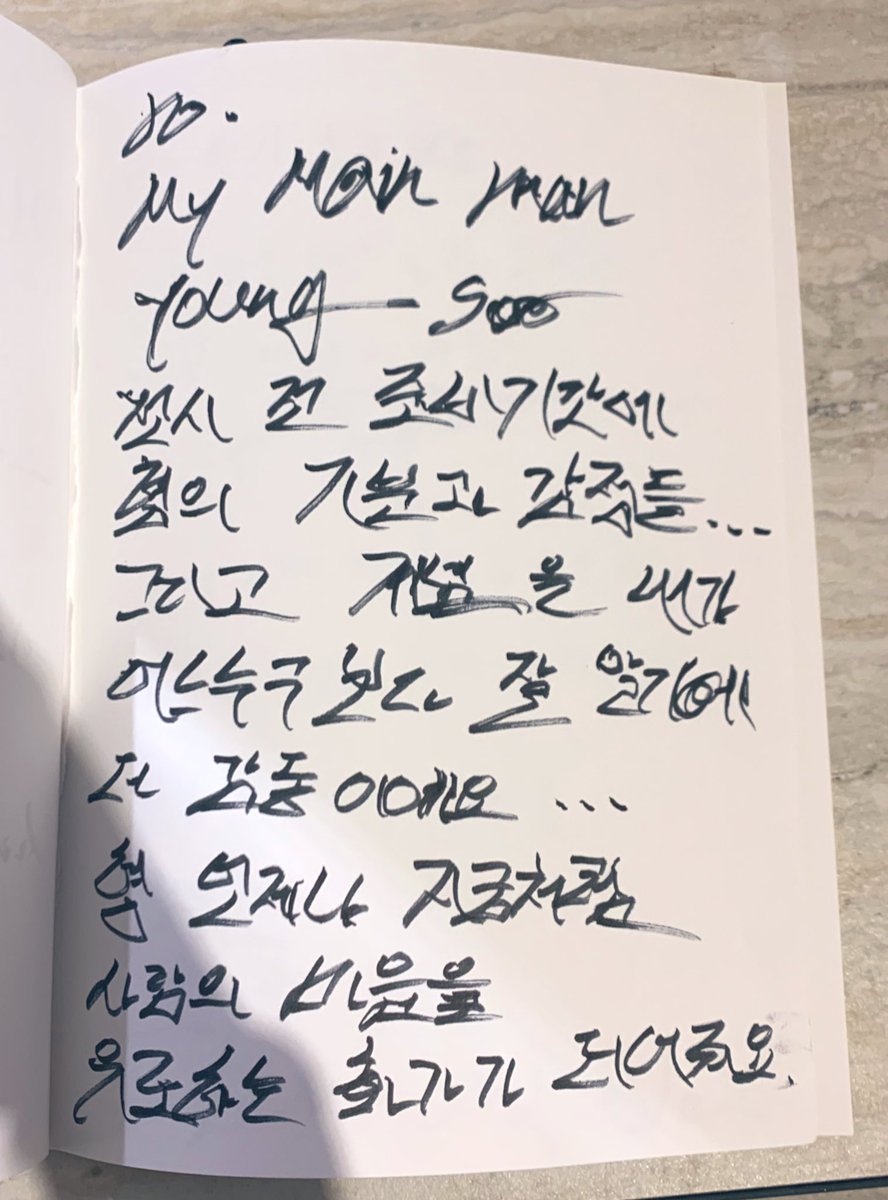 to.
My Main man
Young-Soo
전시 전 준비기간에
형의 기분과 감정들...
그리고 내가
어느누구보다 잘 알기에
더 감동이에요 ...
형 언제나 지금처럼
사람의 마음을
위로하는 화가가 되어줘요.